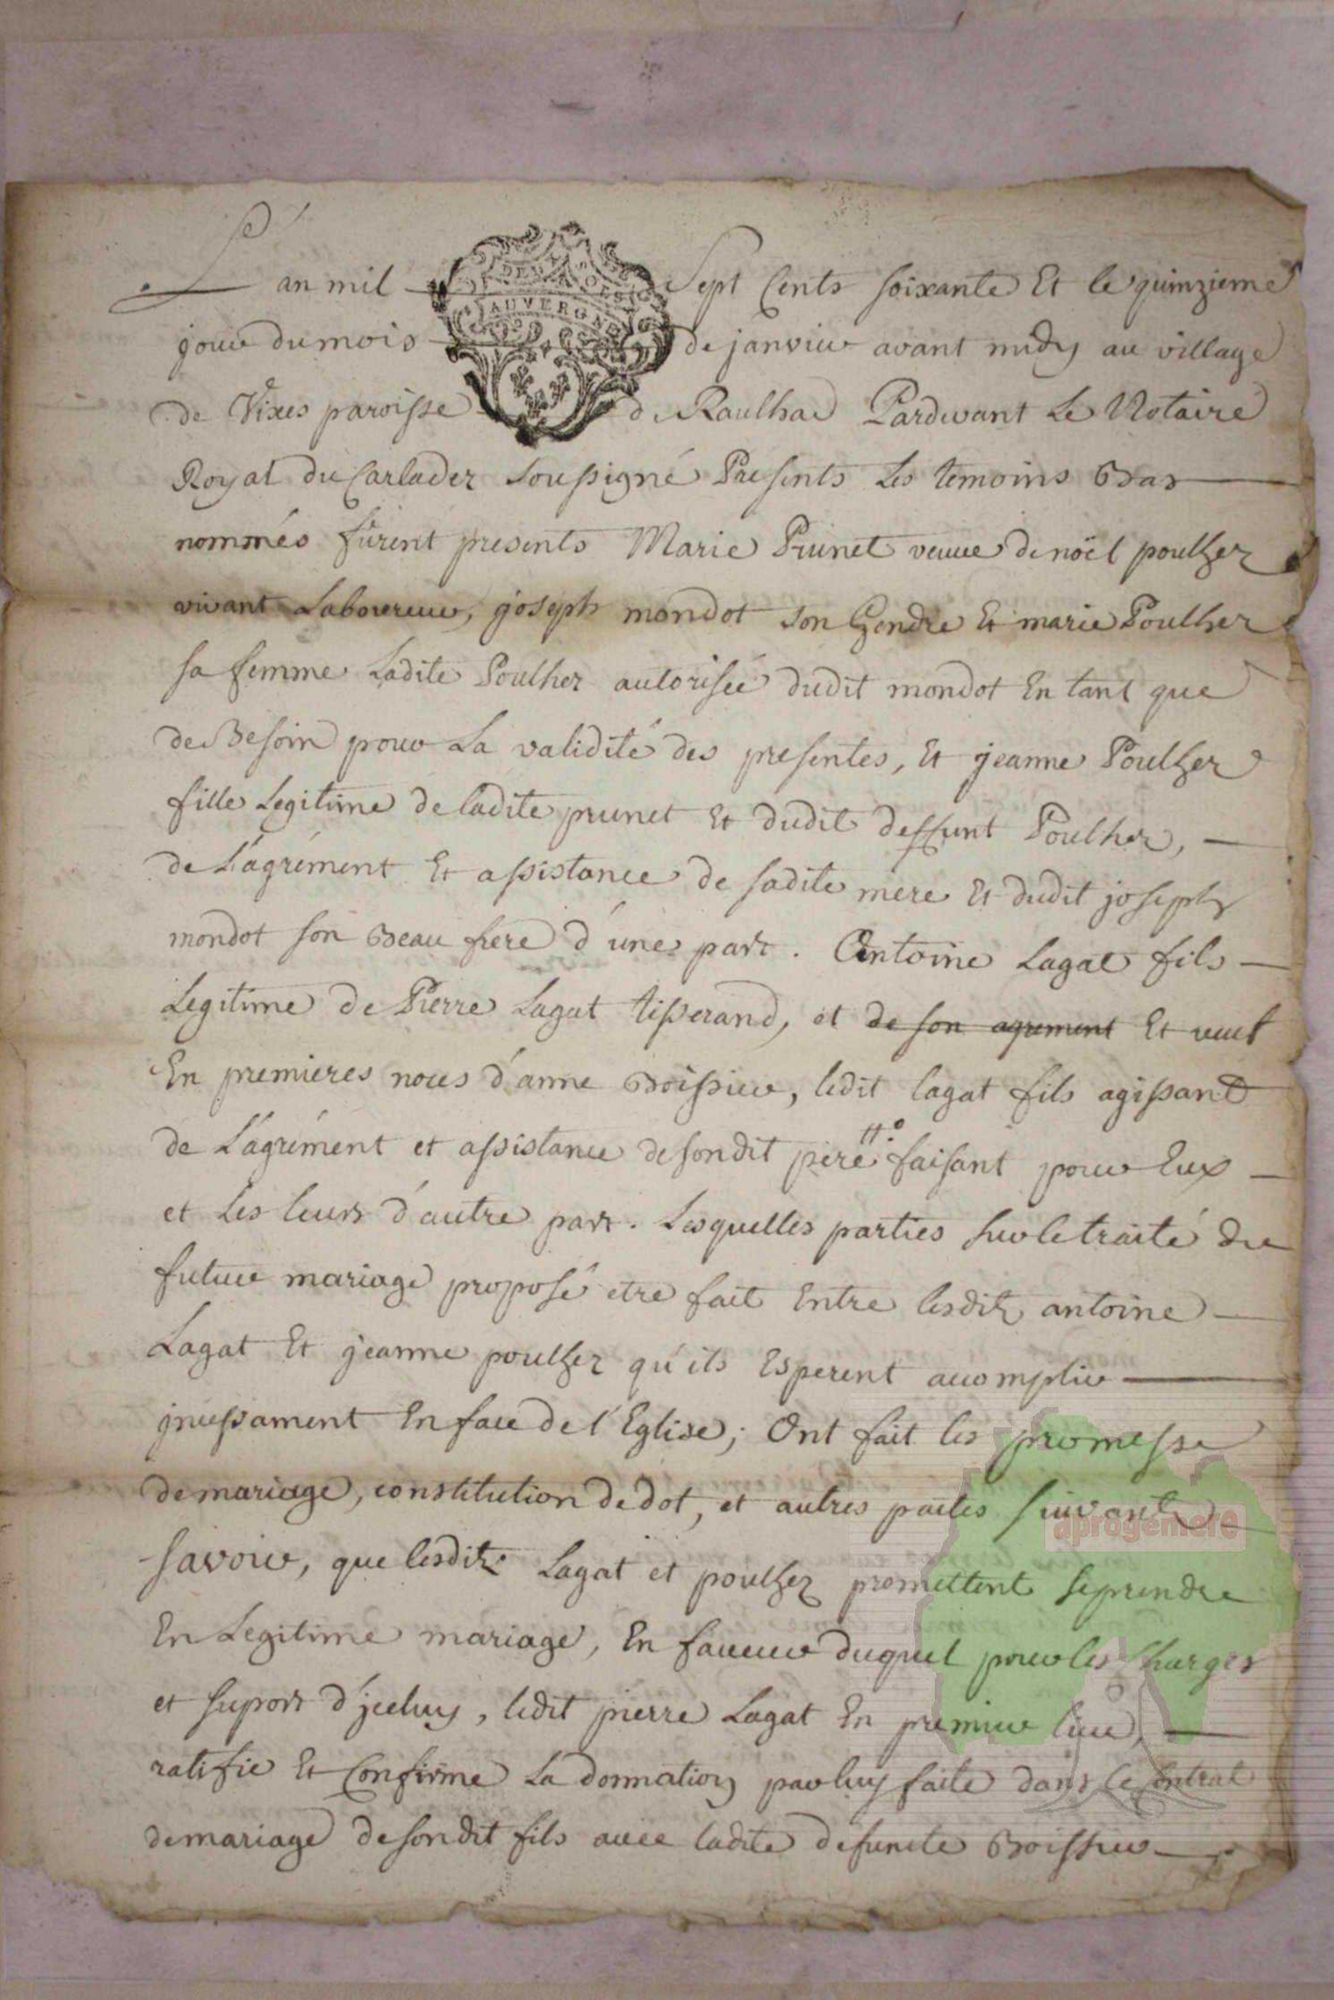 L'an mil Sept Cents soixante Et le quinzieme
jour du mois de janvier avant midy au village
de Vixes paroisse de Raulhac Pardevant Le Notaire
Royal du Carladez soussigné Presents Les temoins Bas
nommés fûrent presents Marie Prunet veuve de noël poulhez
vivant Laboureur, joseph mondot son Gendre Et marie Poulhez
sa femme Ladite Poulhez autorisée dudit mondot En tant que
de Besoin pour La validité des presentes, Et jeanne Poulhez
fille Legitime de ladite prunet Et dudit deffunt Poulhez,
de L'agrément Et assistance de sadite mere Et dudit joseph
mondot son Beau frere d'une part. Antoine Lagat fils
Legitime de Pierre Lagat tisserand, et de son agrement Et veuf
En premieres noces d'anne Boissieu, ledit lagat fils agissant
de L'agrément et assistance de sondit pere faisant pour Eux
et Les leurs d'autre part. Lesquelles parties sur le traité du
futur mariage proposé etre fait Entre lesditz antoine
Lagat Et jeanne poulhez qu'ils Esperent accomplir
jncessament En face de l'Eglise; Ont fait les promesse
de mariage, constitution de dot, et autres pactes suivants
savoir, que lesditz Lagat et poulhez promettent se prendre
En Legitime mariage, En faveur duquel pour les Charges
et suport d'jceluy, ledit pierre Lagat En premier lieu,
ratifie Et Confirme La donnation par luy faite dans Le Contrat
de mariage de sondit fils avec ladite defuncte Boissieu
DEUX SOLS
AUVERGNE
aprogemere